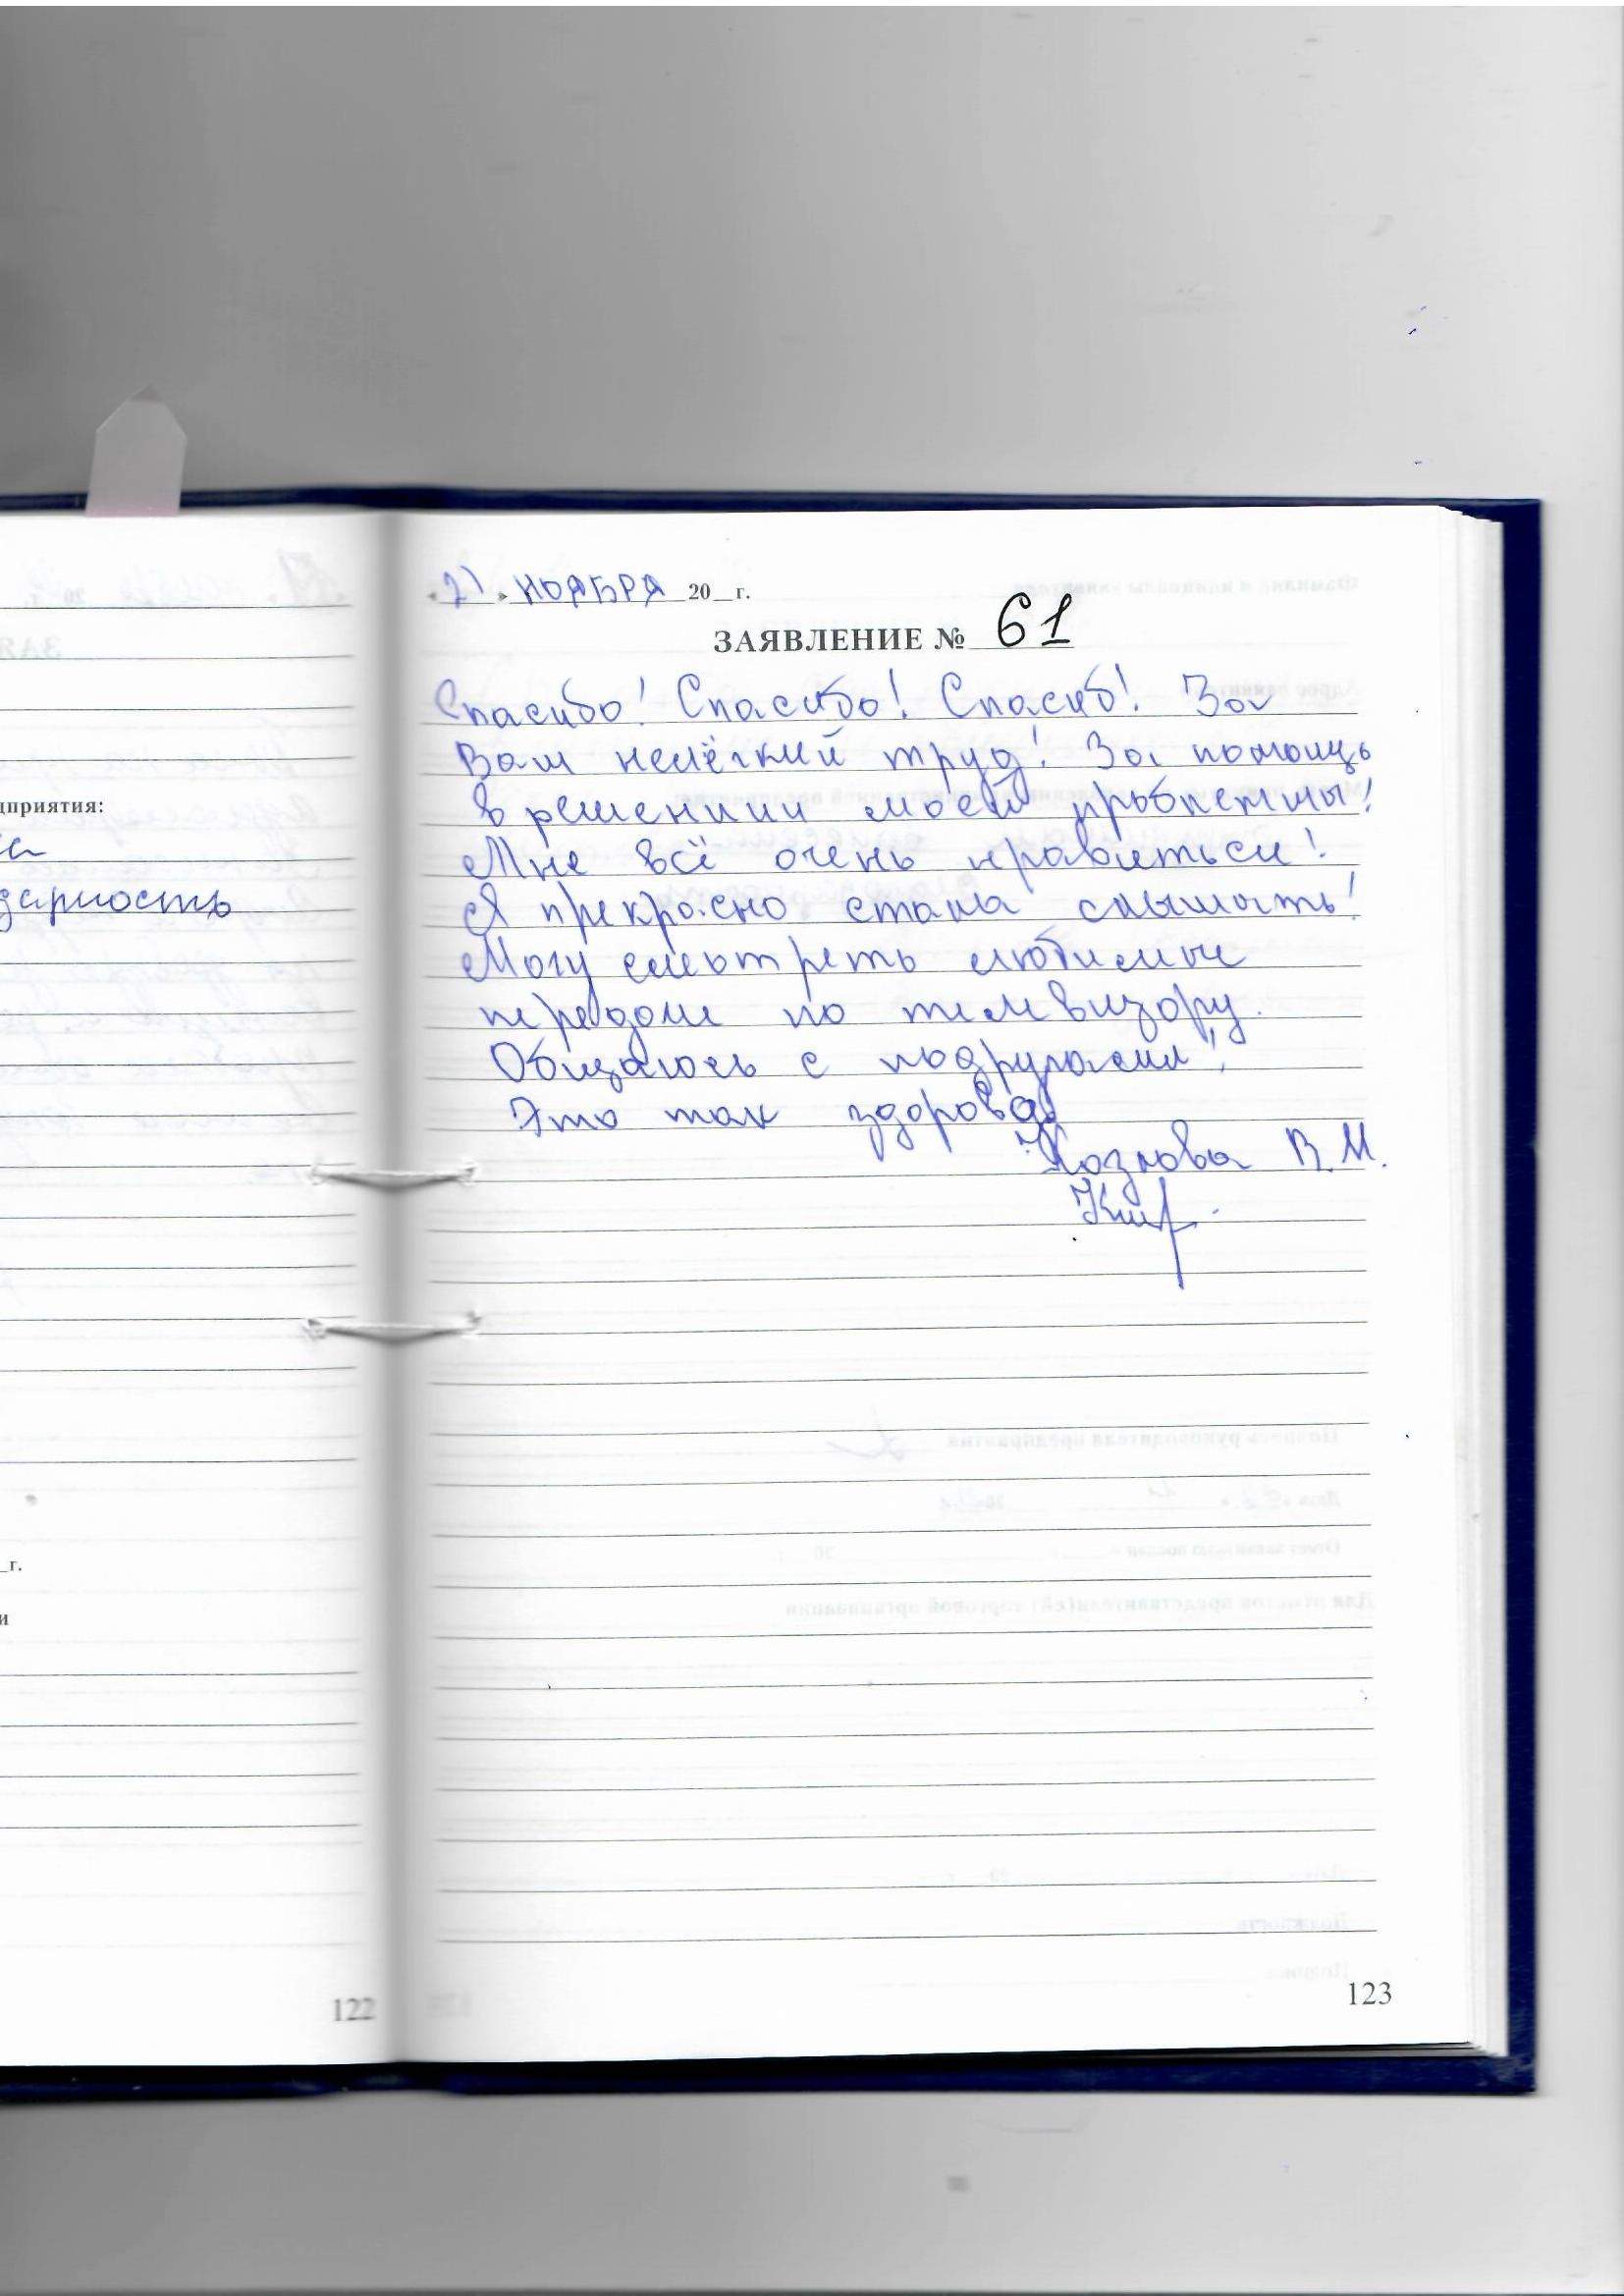 дприятия:
дарность
г.
и
122
« 21 » НОЯБРЯ 20__г.
ЗАЯВЛЕНИЕ № 61
Спасибо! Спасибо! Спасиб! За
Вам нелёгкий труд! За помощь
в решении моей проблеммы!
Мне всё очень нравиться!
Я прекрасно стала слышать!
Могу смотреть любимые
передачи по телевизору.
Общаюсь с подругами!
Это так здорово
В.М.
123